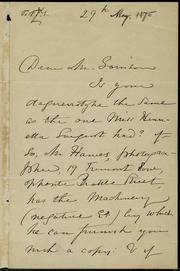 29th May, 1875
Dear Mr. Garrison
Is your
daguerreotype the same
as the one Miss Henri-
etta Sargent had? If
so, Mr. Hawes, photogra-
pher, 19 Tremont Row,
opposite Brattle Street
has the Machinery
(negative &c.) by which
he can furnish you
such a copy: & if